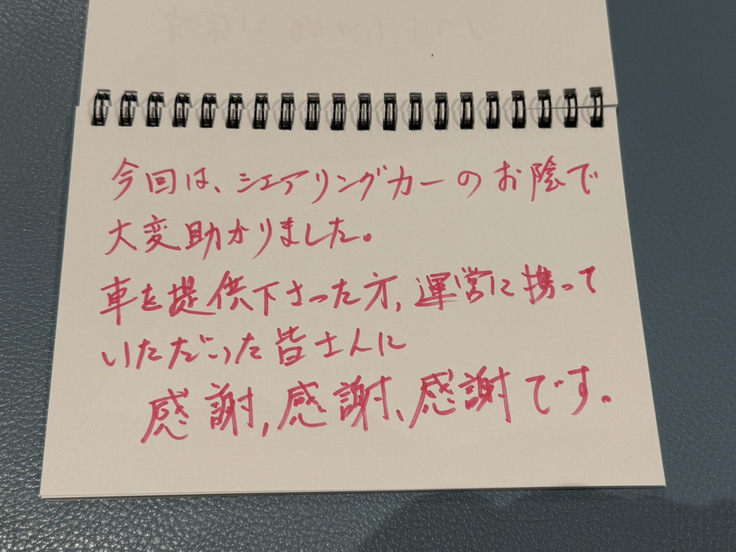 今回は、シェアリングカーのお陰で
大変助かりました。
車を提供下さった方、運営に携って
いただいった皆さんに
感謝,感謝、感謝です。